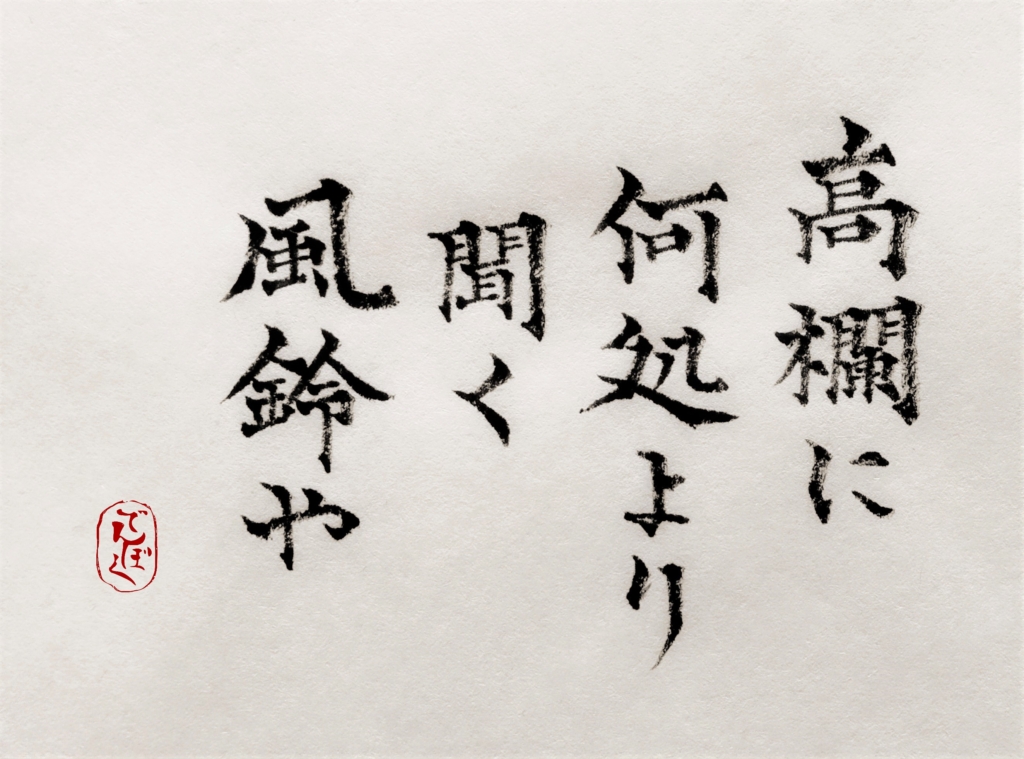 高欄に
何処より
聞く
風鈴や
でんぼく